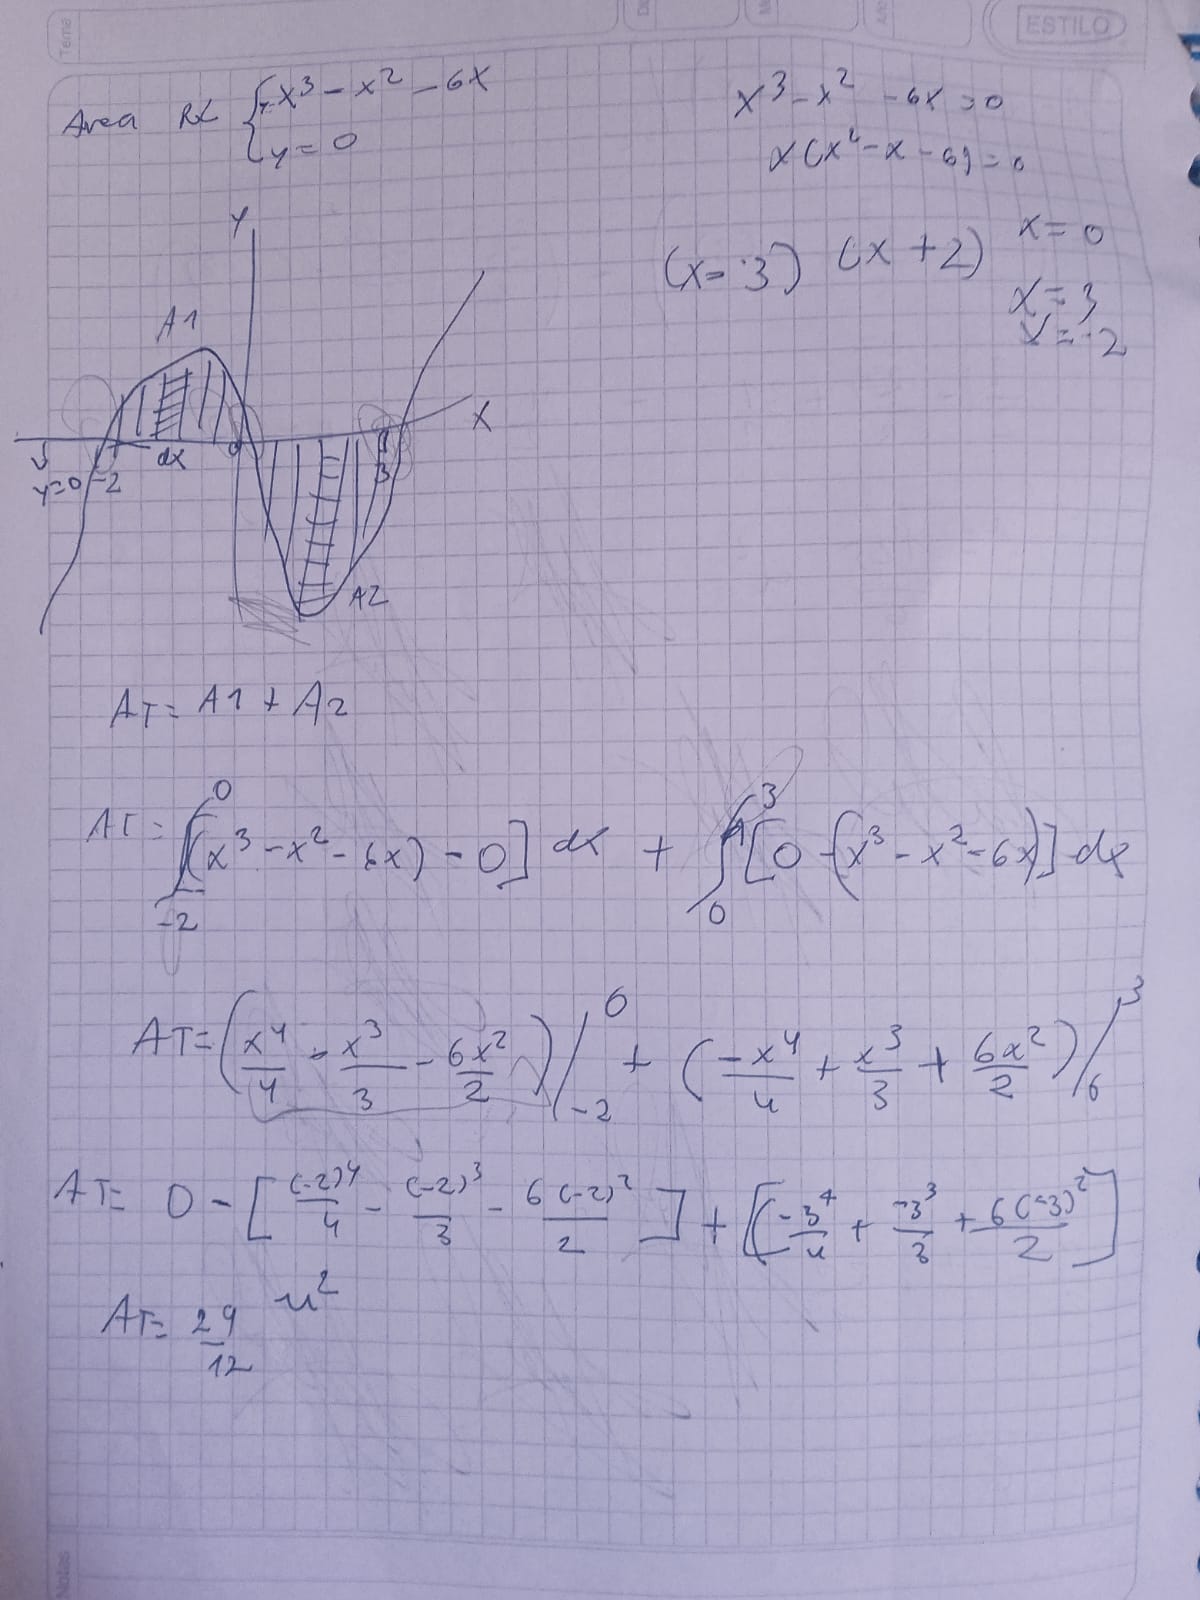 Tema
ESTILO
Area RL { x³ - x² - 6x
y = 0
x³ - x² - 6x = 0
x(x² - x - 6) = 0
(x - 3) (x + 2)
x = 0
x = 3
x = -2
y
A1
x
dx
0
3
y=0
-2
A2
AT = A1 + A2
AT = ∫₋₂⁰ [(x³ - x² - 6x) - 0] dx + ∫₀³ [0 - (x³ - x² - 6x)] dx
AT = (x⁴/4 - x³/3 - 6x²/2) /₋₂⁰ + (-x⁴/4 + x³/3 + 6x²/2) /₀³
AT = 0 - [(-2)⁴/4 - (-2)³/3 - 6(-2)²/2] + [(-3⁴/4 + -3³/3 + 6(-3)²/2]
AT = 29/12 u²
Notas